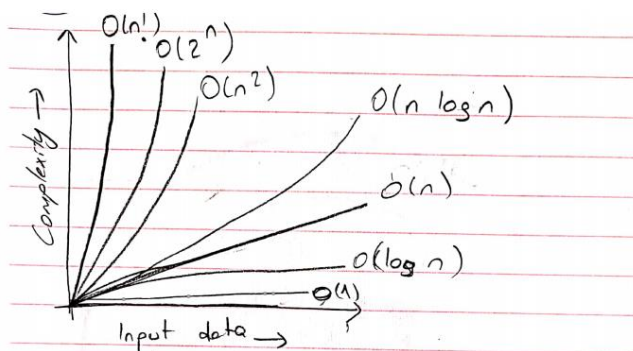 O(n!)
O(2^n)
O(n^2)
O(n log n)
O(n)
O(log n)
O(1)
Complexity →
Input data →